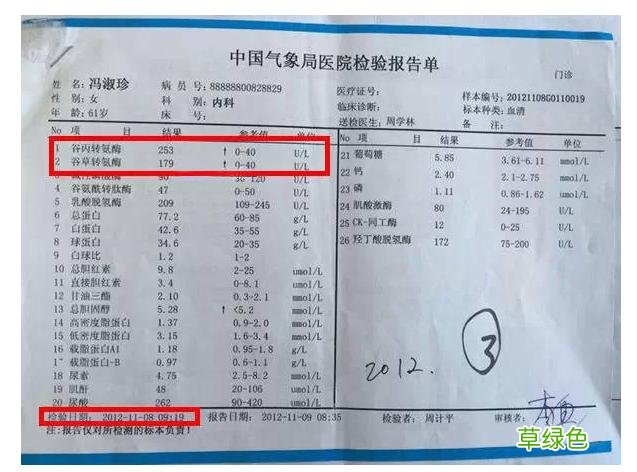 中国气象局医院检验报告单
门诊
姓 名: 冯淑珍 病 员 号: 88888800828829 医疗证号: 样本编号: 20121108G0110019
性 别: 女 科 别: 内科 临床诊断: 标本种类: 血清
年 龄: 61岁 床 号: 送检医生: 周学林 备 注:
No 项 目 结果 参考值 单位 No 项 目 结果 参考值 单位
1 谷丙转氨酶 253 ↑ 0-40 U/L 21 葡萄糖 5.85 3.61-6.11 mmol/L
2 谷草转氨酶 179 ↑ 0-40 U/L 22 钙 2.40 2.1-2.75 mmol/L
3 碱性磷酸酶 90 30-120 U/L 23 磷 1.11 0.86-1.62 umol/L
4 谷氨酰转肽酶 47 0-50 U/L 24 肌酸激酶 80 24-195 U/L
5 乳酸脱氢酶 209 109-245 U/L 25 CK-同工酶 12 0-25 U/L
6 总蛋白 77.2 60-85 g/L 26 羟丁酸脱氢酶 172 75-200 U/L
7 白蛋白 42.6 35-55 g/L
8 球蛋白 34.6 20-35 g/L
9 白球比 1.2 1-2
10 总胆红素 9.8 2-25 umol/L
11 直接胆红素 3.4 0-8.1 umol/L
12 甘油三酯 2.10 0.3-2.1 mmol/L
13 总胆固醇 5.28 ↑ <5.2 mmol/L
14 高密度脂蛋白 1.37 0.9-2.0 mmol/L
15 低密度脂蛋白 3.15 1.6-3.4 mmol/L
16 载脂蛋白A1 1.18 0.95-1.8 g/L
17 载脂蛋白-B 0.97 0.6-1.1 g/L
18 尿素 4.75 2.5-8.2 mmol/L
19 肌酐 48 20-106 umol/L
20 尿酸 262 90-420 umol/L
2012. ③
检验日期: 2012-11-08 09:19 报告日期: 2012-11-09 08:35 检验者: 周计平 审核者:
注:报告仅对所检测的标本负责!
草绿色